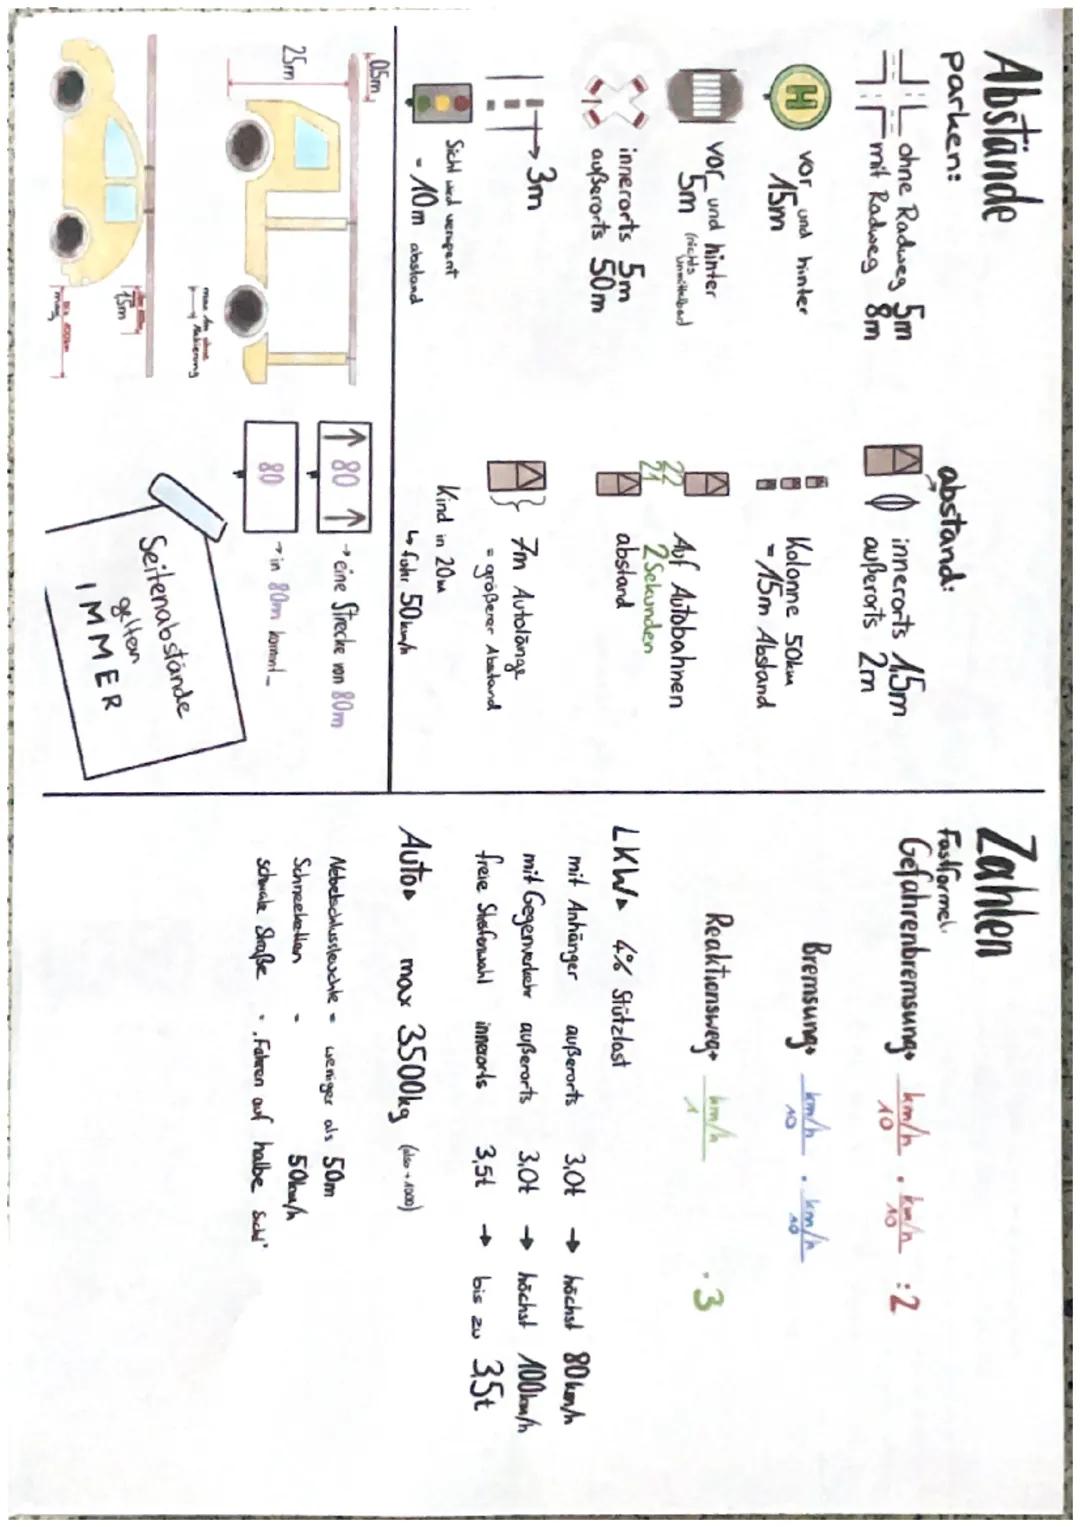 Abstände
parken:
ohne Radweg 5m
mit Radweg 8m
H
vor und hinter
15m
vor und hinter
5m (nichts unmittelbad
innerorts 5m
außerorts 50m
3m
Sicht wird versperrt
= 10m abstand
abstand:
innerorts 1,5m
außerorts 2m
Kolonne 50km
= 15m Abstand
22
21
Auf Autobahnen
2 Sekunden
abstand
7m Autolänge
= größerer Abstand
Kind in 20m
↳ fahr 50km/h
0,5m
25m
max 1m ohne
Makierung
1,5m
↑ 80 ↑
→ eine Strecke von 80m
80
→ in 80m kommt_
Seitenabstände
gelten
IMMER
Zahlen
Fastformel:
Gefahrenbremsung: km/h / 10 · km/h / 10 : 2
Bremsung: km/h / 10 · km/h / 10
Reaktionsweg: km/h / 1 · 3
LKW: 4% Stützlast
mit Anhänger außerorts 3,0t → höchst 80km/h
mit Gegenverkehr außerorts 3,0t → höchst 100km/h
freie innerorts 3,5t → bis zu 3,5t
Auto: max 3500kg (also + 1000)
Nebelschlussleuchte = weniger als 50m
Schneeketten = 50km/h
schmale Straße = „Fahren auf halbe Sicht"